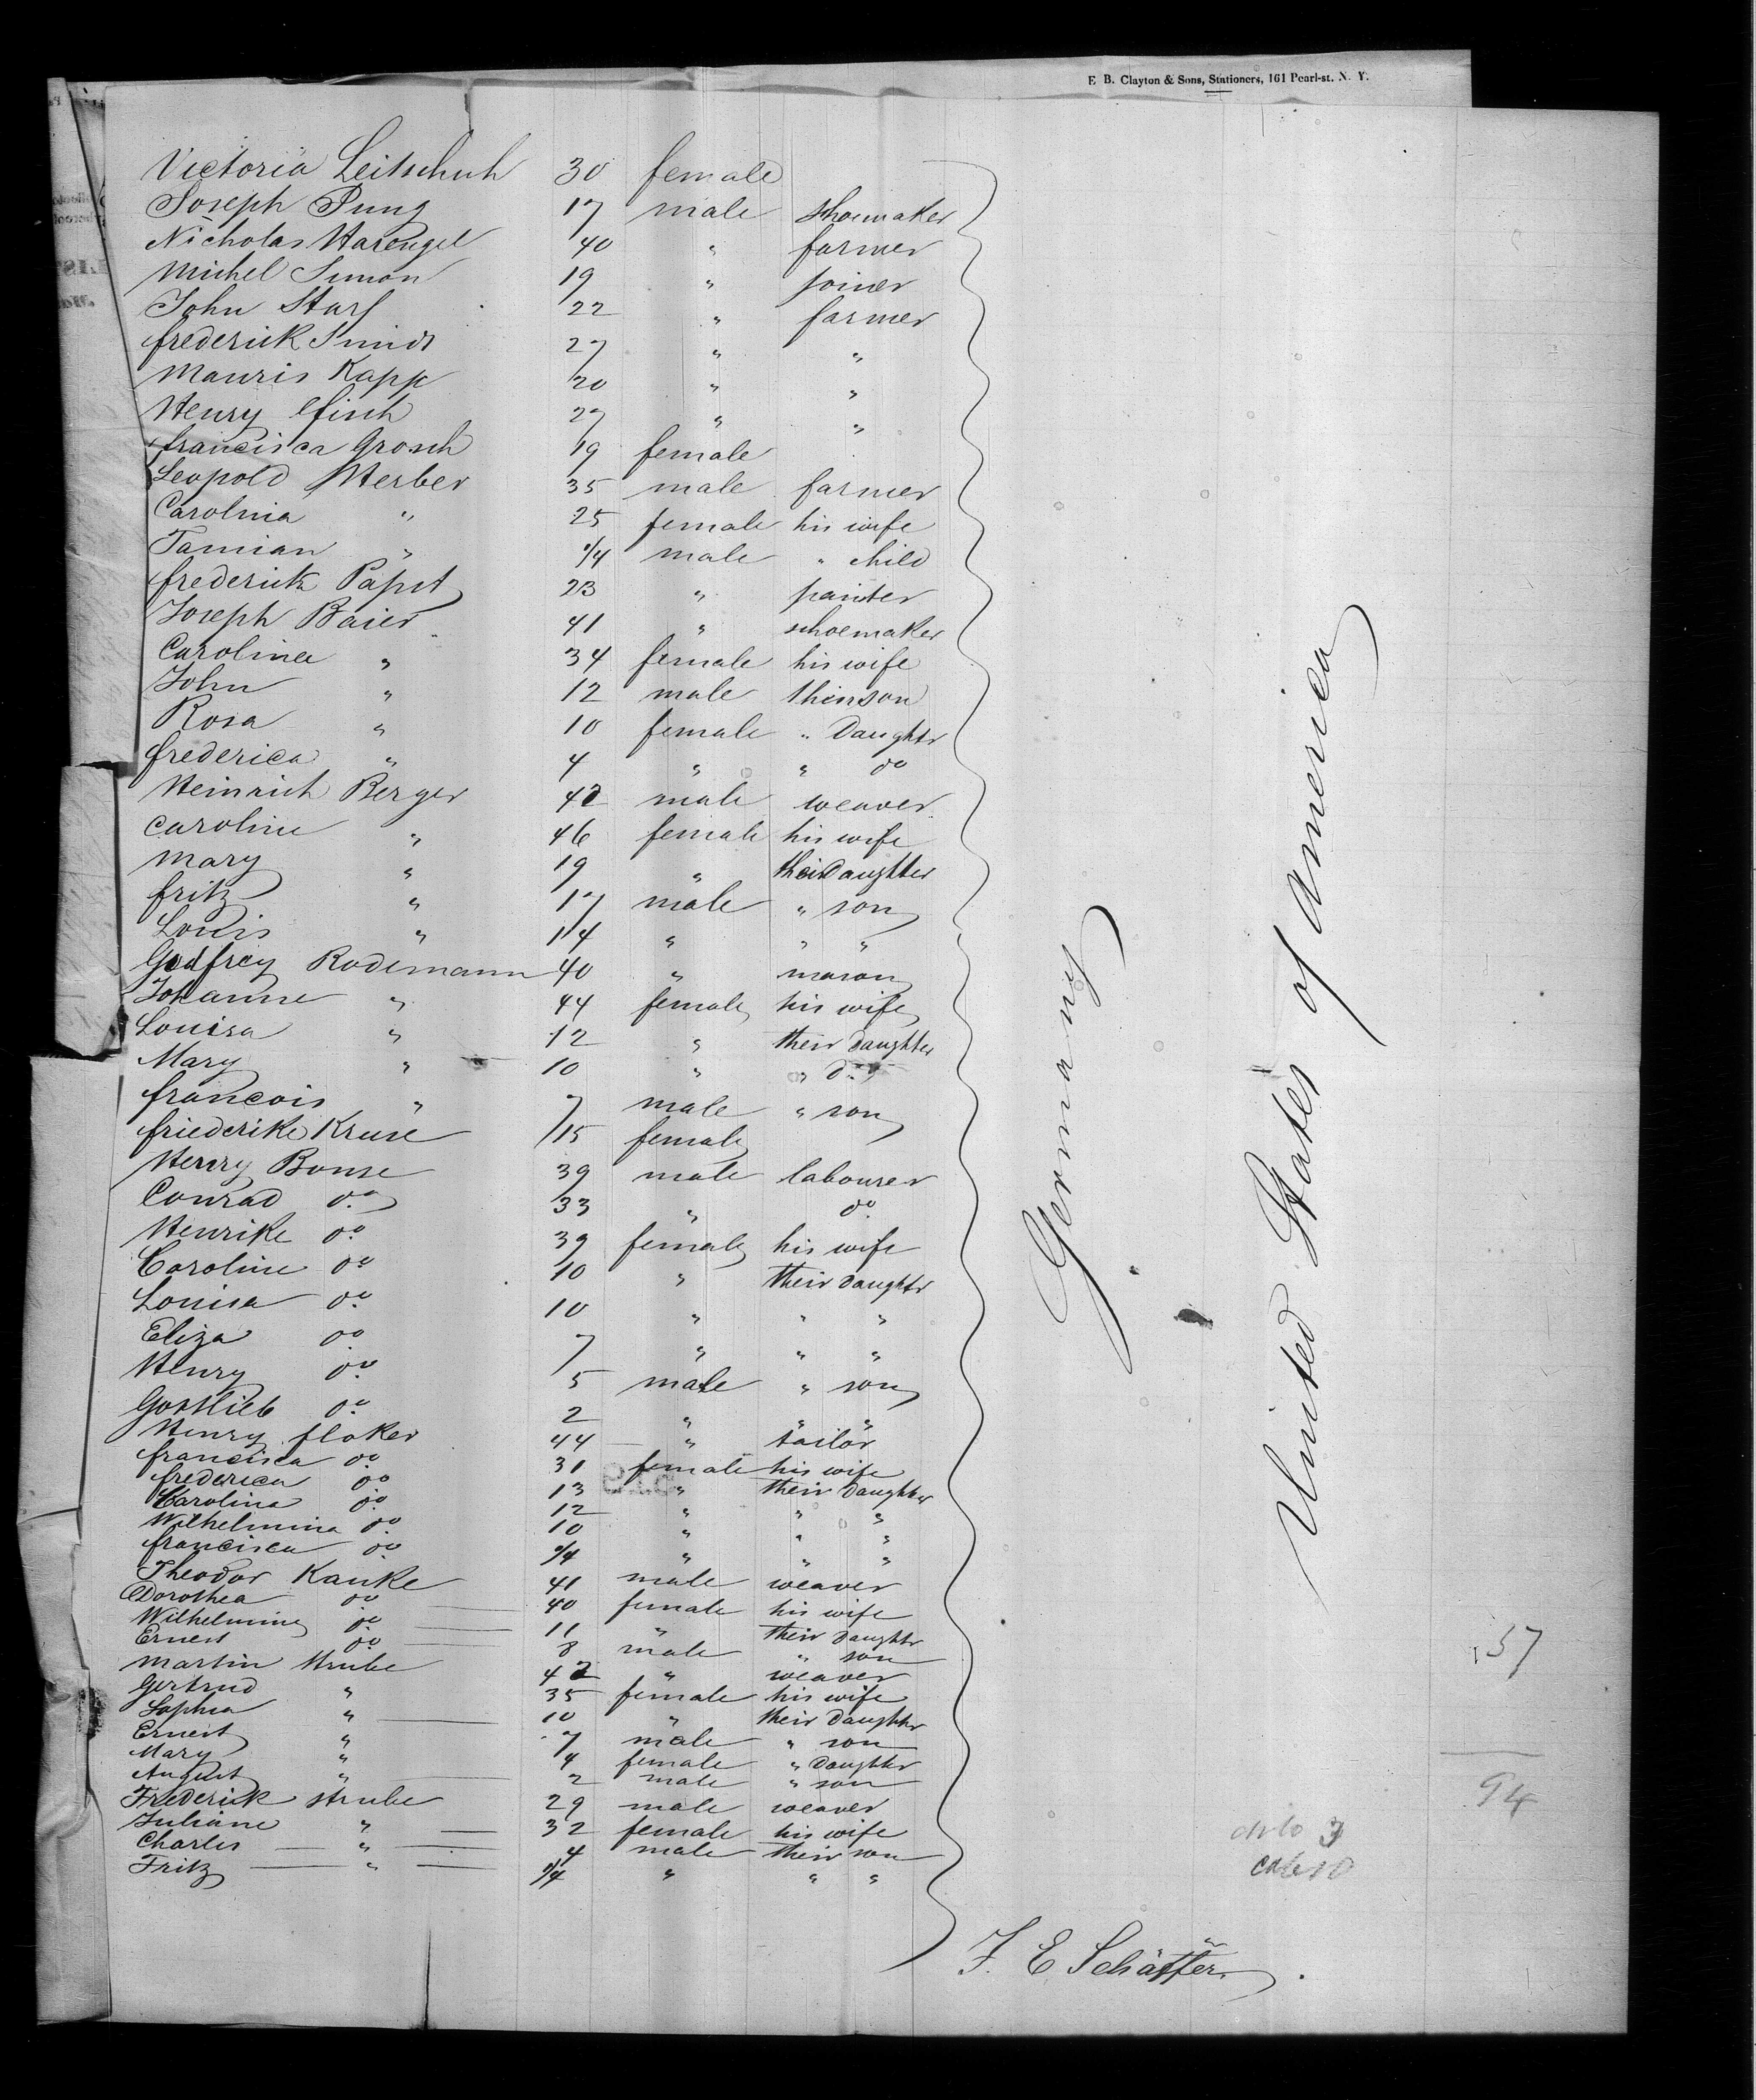 E. B. Clayton & Sons, Stationers, 161 Pearl-st. N. Y.
Victoria Leitschuh 30 female
Joseph Pung 17 male shoemaker
Nicholas Harengel 40 " farmer
Michel Simon 19 " joiner
John Starf 22 " farmer
frederick Smidt 27 " "
Mauris Kapp 20 " "
Henry 27 " "
francisca Grosch 19 female
Leopold Herber 35 male farmer
Carolina " 25 female his wife
Tamian " /4 male " child
frederick Papst 23 " painter
Joseph Baier 41 " schoemaker
Carolina " 34 female his wife
John " 12 male their son
Rosa " 10 female " Daughtr
frederica " 4 " " do
Heinrich Berger 42 male weaver
Caroline " 46 female his wife
Mary " 19 " their Daughter
fritz " 17 male " son
Louis " 14 " " "
Godfrey Rodemann 40 " mason
Johanne " 44 female his wife
Louisa " 12 " their daughter
Mary " 10 " " do
francois " 7 male " son
friederike Kruse 15 female
Henry Bonse 39 male labourer
Conrad do 33 " do
Henrike do 39 female his wife
Caroline do 10 " their daughtr
Louisa do 10 " " "
Eliza do 7 " " "
Henry do 5 male " son
Gottlieb do 2 " " "
Henry floker 44 " tailor
francisca do 31 female his wife
frederica do 13 " their daughter
Carolina do 12 " " "
Wilhelmina do 10 " " "
francisca do /4 " " "
Theodor Kanke 41 male weaver
Dorothea do 40 female his wife
Wilhelmine do 11 " their daughtr
Ernest do 8 male " son
Martin Strube 42 " weaver
Gertrud " 35 female his wife
Sophia " 10 " their daughtr
Ernest " 7 male " son
Mary " 4 female " daughter
August " 2 male " son
Frederick strube 29 male weaver
Juliane " 32 female his wife
Charles " 4 male their son
Fritz " /4 " " "
Germany
United States of America
57
94
F. E. Schäffer.